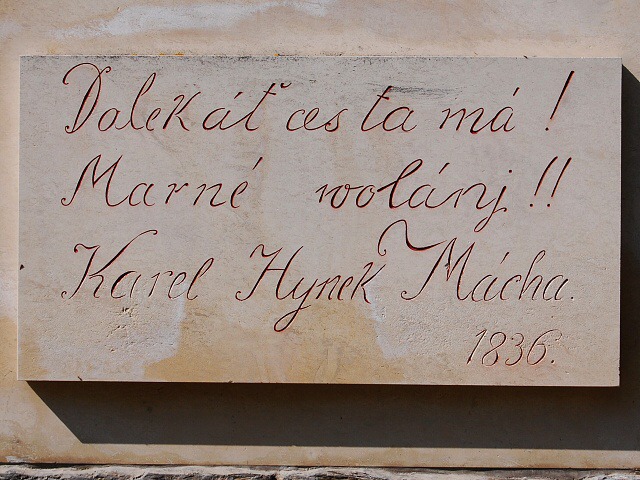 Dalekáť cesta má !
Marné wolánj !!
Karel Hynek Mácha.
1836.